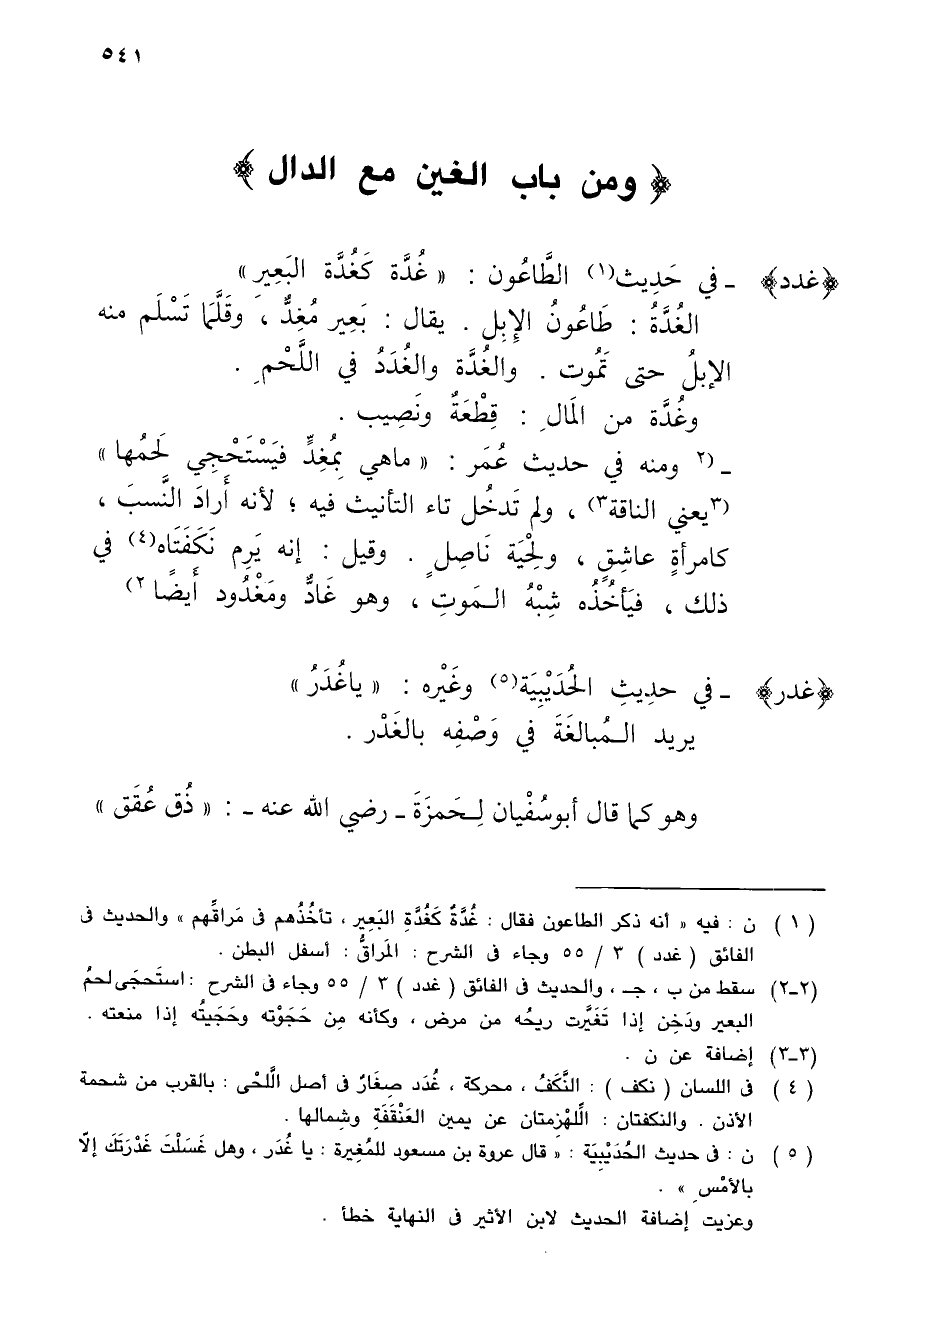 ٥٤١
﴿ ومن باب الغين مع الدال ﴾
﴿غدد﴾ ـ في حَدِيث(١) الطَّاعُون : « غُدَّة كَغُدَّة البَعِير »
الغُدَّةُ : طَاعُونُ الإِبِل . يقال : بَعِير مُغِدٌّ ، وقَلَّمَا تَسْلَم منه
الإبلُ حتى تَمُوت . والغُدَّة والغُدَدُ في اللَّحْمِ .
وغُدَّة من المَالِ : قِطْعَةٌ ونَصِيب .
ـ (٢ ومنه في حديث عُمَر : « ماهي بِمُغِدٍّ فيَسْتَحْجِي لَحمُها »
(٣يعني الناقة٣) ، ولم تَدخُل تاء التأنيث فيه ؛ لأنه أَرادَ النَّسبَ ،
كامرأةٍ عاشِقٍ ، ولِحْيَة نَاصِلٍ . وقيل : إنه يَرِم نَكَفَتَاه(٤) في
ذلك ، فيَأخُذُه شِبْهُ الـمَوتِ ، وهو غَادٌّ ومَغْدُود أَيضًا ٢)
﴿غدر﴾ ـ في حدِيثِ الحُدَيْبِيَة(٥) وغَيْرِه : « ياغُدَرُ »
يريد الـمُبالغَةَ في وَصْفِه بالغَدْر .
وهو كما قال أبوسُفْيان لِـحَمزَةَ ـ رضي الله عنه ـ : « ذُق عُقَق »
(١) ن : فيه « أنه ذكر الطاعون فقال : غُدَّةٌ كَغُدَّةِ البَعِير ، تأخُذُهم فى مَراقِّهم » والحديث فى
الفائق ( غدد ) ٣ / ٥٥ وجاء فى الشرح : المَراقُّ : أسفل البطن .
(٢ـ٢) سقط من ب ، جـ ، والحديث فى الفائق ( غدد ) ٣ / ٥٥ وجاء فى الشرح : استَحجَى لحمُ
البعير ودَخِن إذا تَغَيَّرت ريحُه من مرض ، وكأنه مِن حَجَوْته وحَجَيتُه إذا منعته .
(٣ـ٣) إضافة عن ن .
(٤) فى اللسان ( نكف ) : النَّكَفُ ، محركة ، غُدَد صِغَارٌ فى أصل الَّلحْى : بالقرب من شحمة
الأذن . والنكفتان : الَّلهْزِمتان عن يمين العَنْقَفَةِ وشمالها .
(٥) ن : فى حديث الحُدَيْبِيَة : « قال عروة بن مسعود للمُغِيرة : يا غُدَر ، وهل غَسَلْتَ غَدْرَتَكَ إلاَّ
بالأَمْسِ » .
وعزيت إضافة الحديث لابن الأثير فى النهاية خطأ .